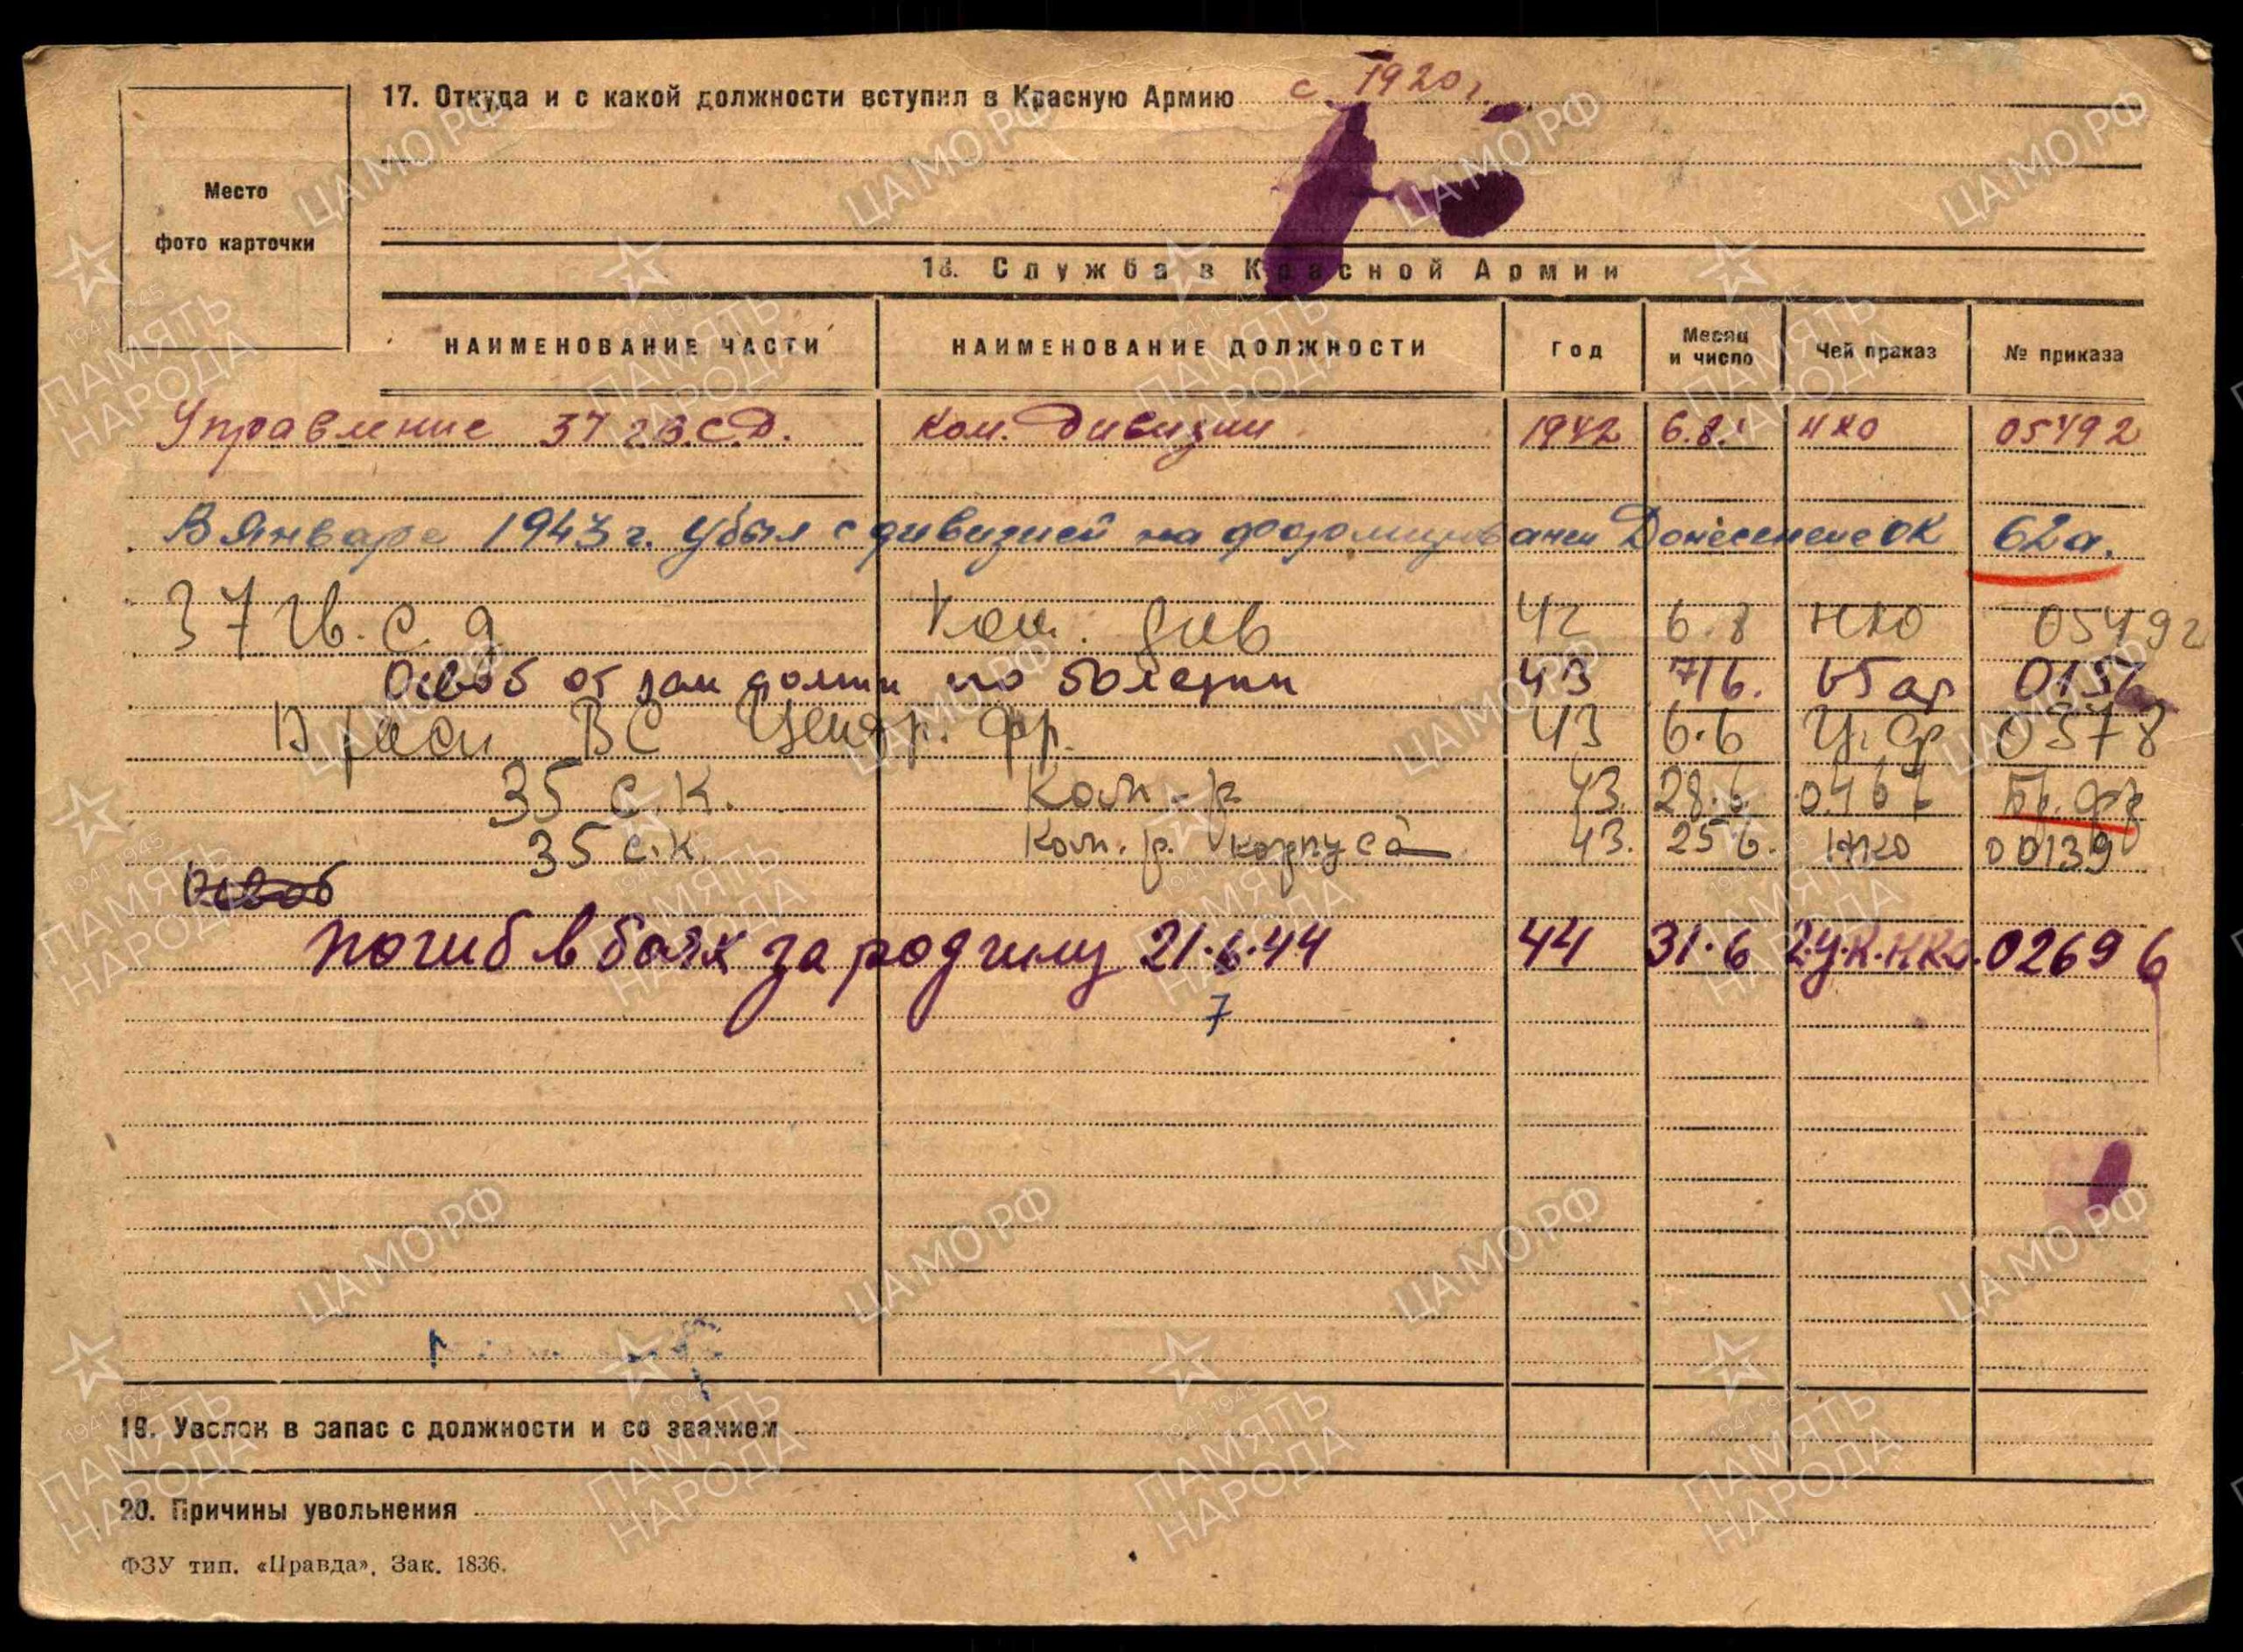 17. Откуда и с какой должности вступил в Красную Армию с 1920 г.
Место
фото карточки
18. Служба в Красной Армии
НАИМЕНОВАНИЕ ЧАСТИ НАИМЕНОВАНИЕ ДОЛЖНОСТИ Год Месяц и число Чей приказ № приказа
Управление 37 гв.СД. Ком. дивизии 1942 6.8. НКО 05492
В январе 1943 г. убыл с дивизией на доформировании Донесение ОК 62а.
37 гв. с. д Ком. див 42 6.8 НКО 05492
Освоб от зам должн по болезни 43 7/6. 65 ар
В расп ВС Центр. фр. 43 6.6 Ц. ф 0378
35 с.к. Ком-р 43. 28.6 Бр. фр
35 с.к. Ком. р. корпуса 43. 25 6. НКО 00139
Освоб
погиб в боях за родину 21.6.44 44 31.6 2.У.К.НКО. 02696
7
19. Уволен в запас с должности и со званием
20. Причины увольнения
ФЗУ тип. «Правда», Зак. 1836.
ЦАМО РФ
1941-1945
ПАМЯТЬ
НАРОДА